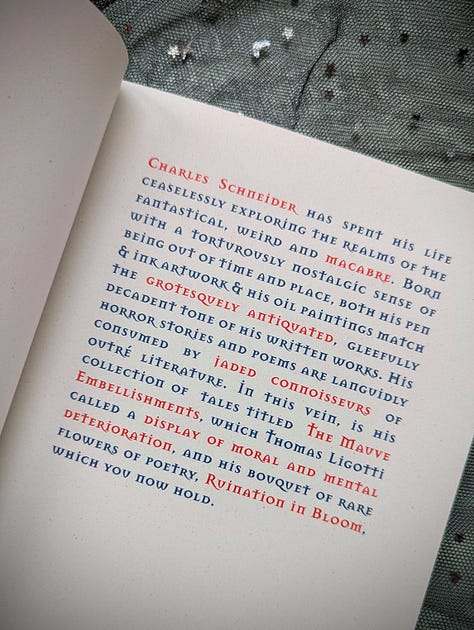 Charles Schneider has spent his life
ceaselessly exploring the realms of the
fantastical, weird and macabre. Born
with a torturously nostalgic sense of
being out of time and place, both his pen
& ink artwork & his oil paintings match
the grotesquely antiquated, gleefully
decadent tone of his written works. His
horror stories and poems are languidly
consumed by jaded connoisseurs of
outré literature. In this vein, is his
collection of tales titled The Mauve
Embellishments, which Thomas Ligotti
called a display of moral and mental
deterioration, and his bouquet of rare
flowers of poetry, Ruination in Bloom,
which you now hold.